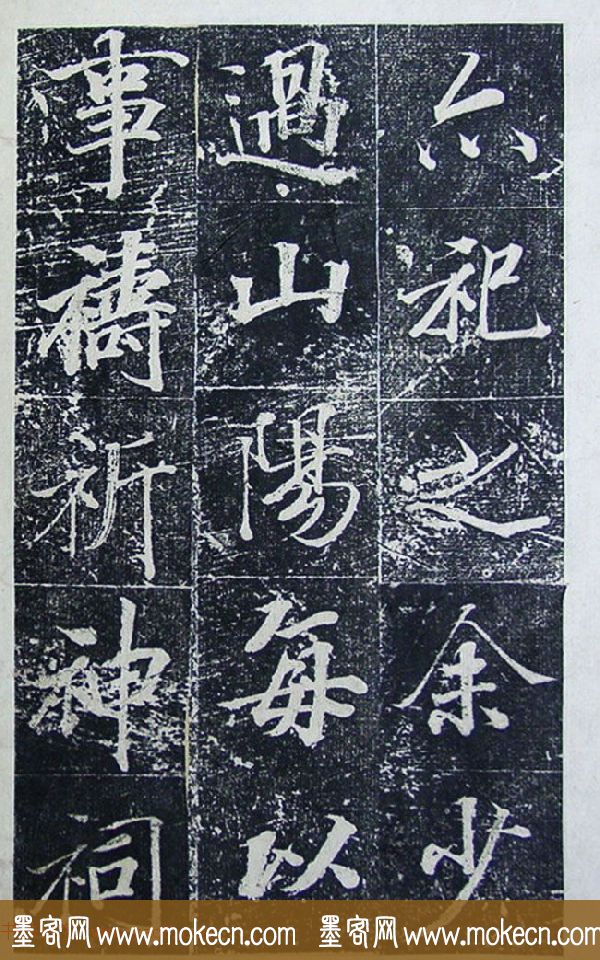 六祀之余少
過山陽每以
事禱祈神祠
墨客网 www.mokecn.com 墨客网 www.mokecn.com